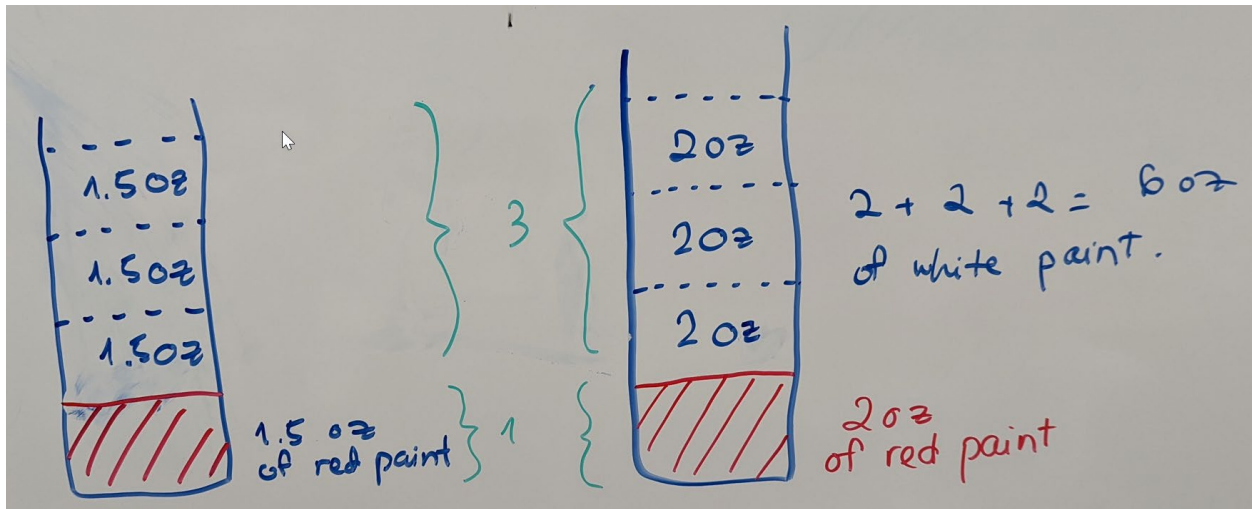 1.5oz
1.5oz
1.5oz
1.5 oz
of red paint
3
1
2oz
2oz
2oz
2 + 2 + 2 = 6 oz
of white paint.
2oz
of red paint